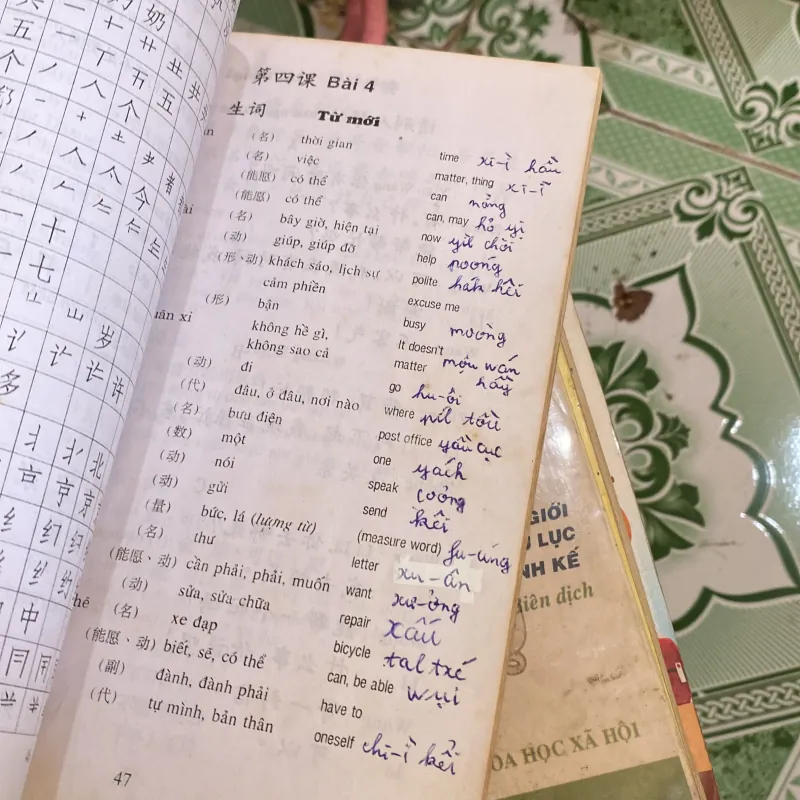 第四课 Bài 4
生词 Từ mới
(名) thời gian time xi-ì hầu
(名) việc matter, thing xi-ĩ
(能愿) có thể can nảng
(能愿) có thể can, may hỏ yị
(名) bây giờ, hiện tại now
(动) giúp, giúp đỡ help poóng
(形、动) khách sáo, lịch sự polite hák hêi
cảm phiền excuse me
(形) bận busy mường
không hề gì, It doesn't
không sao cả matter mộu wán
(动) đi go hu-ôi
(代) đâu, ở đâu, nơi nào where
(名) bưu điện post office yầu cục
(数) một one yách
(动) nói speak coỏng
(动) gửi send kêi
(量) bức, lá (lượng từ) (measure word) fu-úng
(名) thư letter xu-ân
(能愿、动) cần phải, phải, muốn want
(动) sửa, sửa chữa repair xấu
(名) xe đạp bicycle
(能愿、动) biết, sẽ, có thể can, be able wụi
(副) đành, đành phải have to
(代) tự mình, bản thân oneself chi-ì kẻi
47
奶
五
个
十
七
山 岁
许
多
北
京
中
GIỚI
LỤC
NH KẾ
Biên dịch
OA HỌC XÃ HỘI